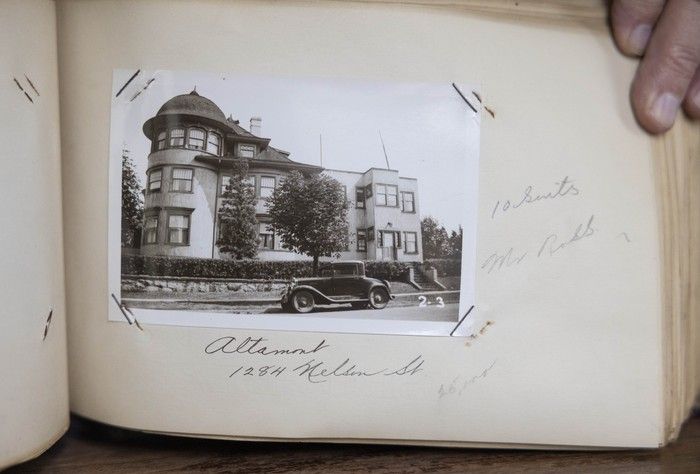 2-3
10 Suits
Mr Robb
Altamont
1284 Nelson St